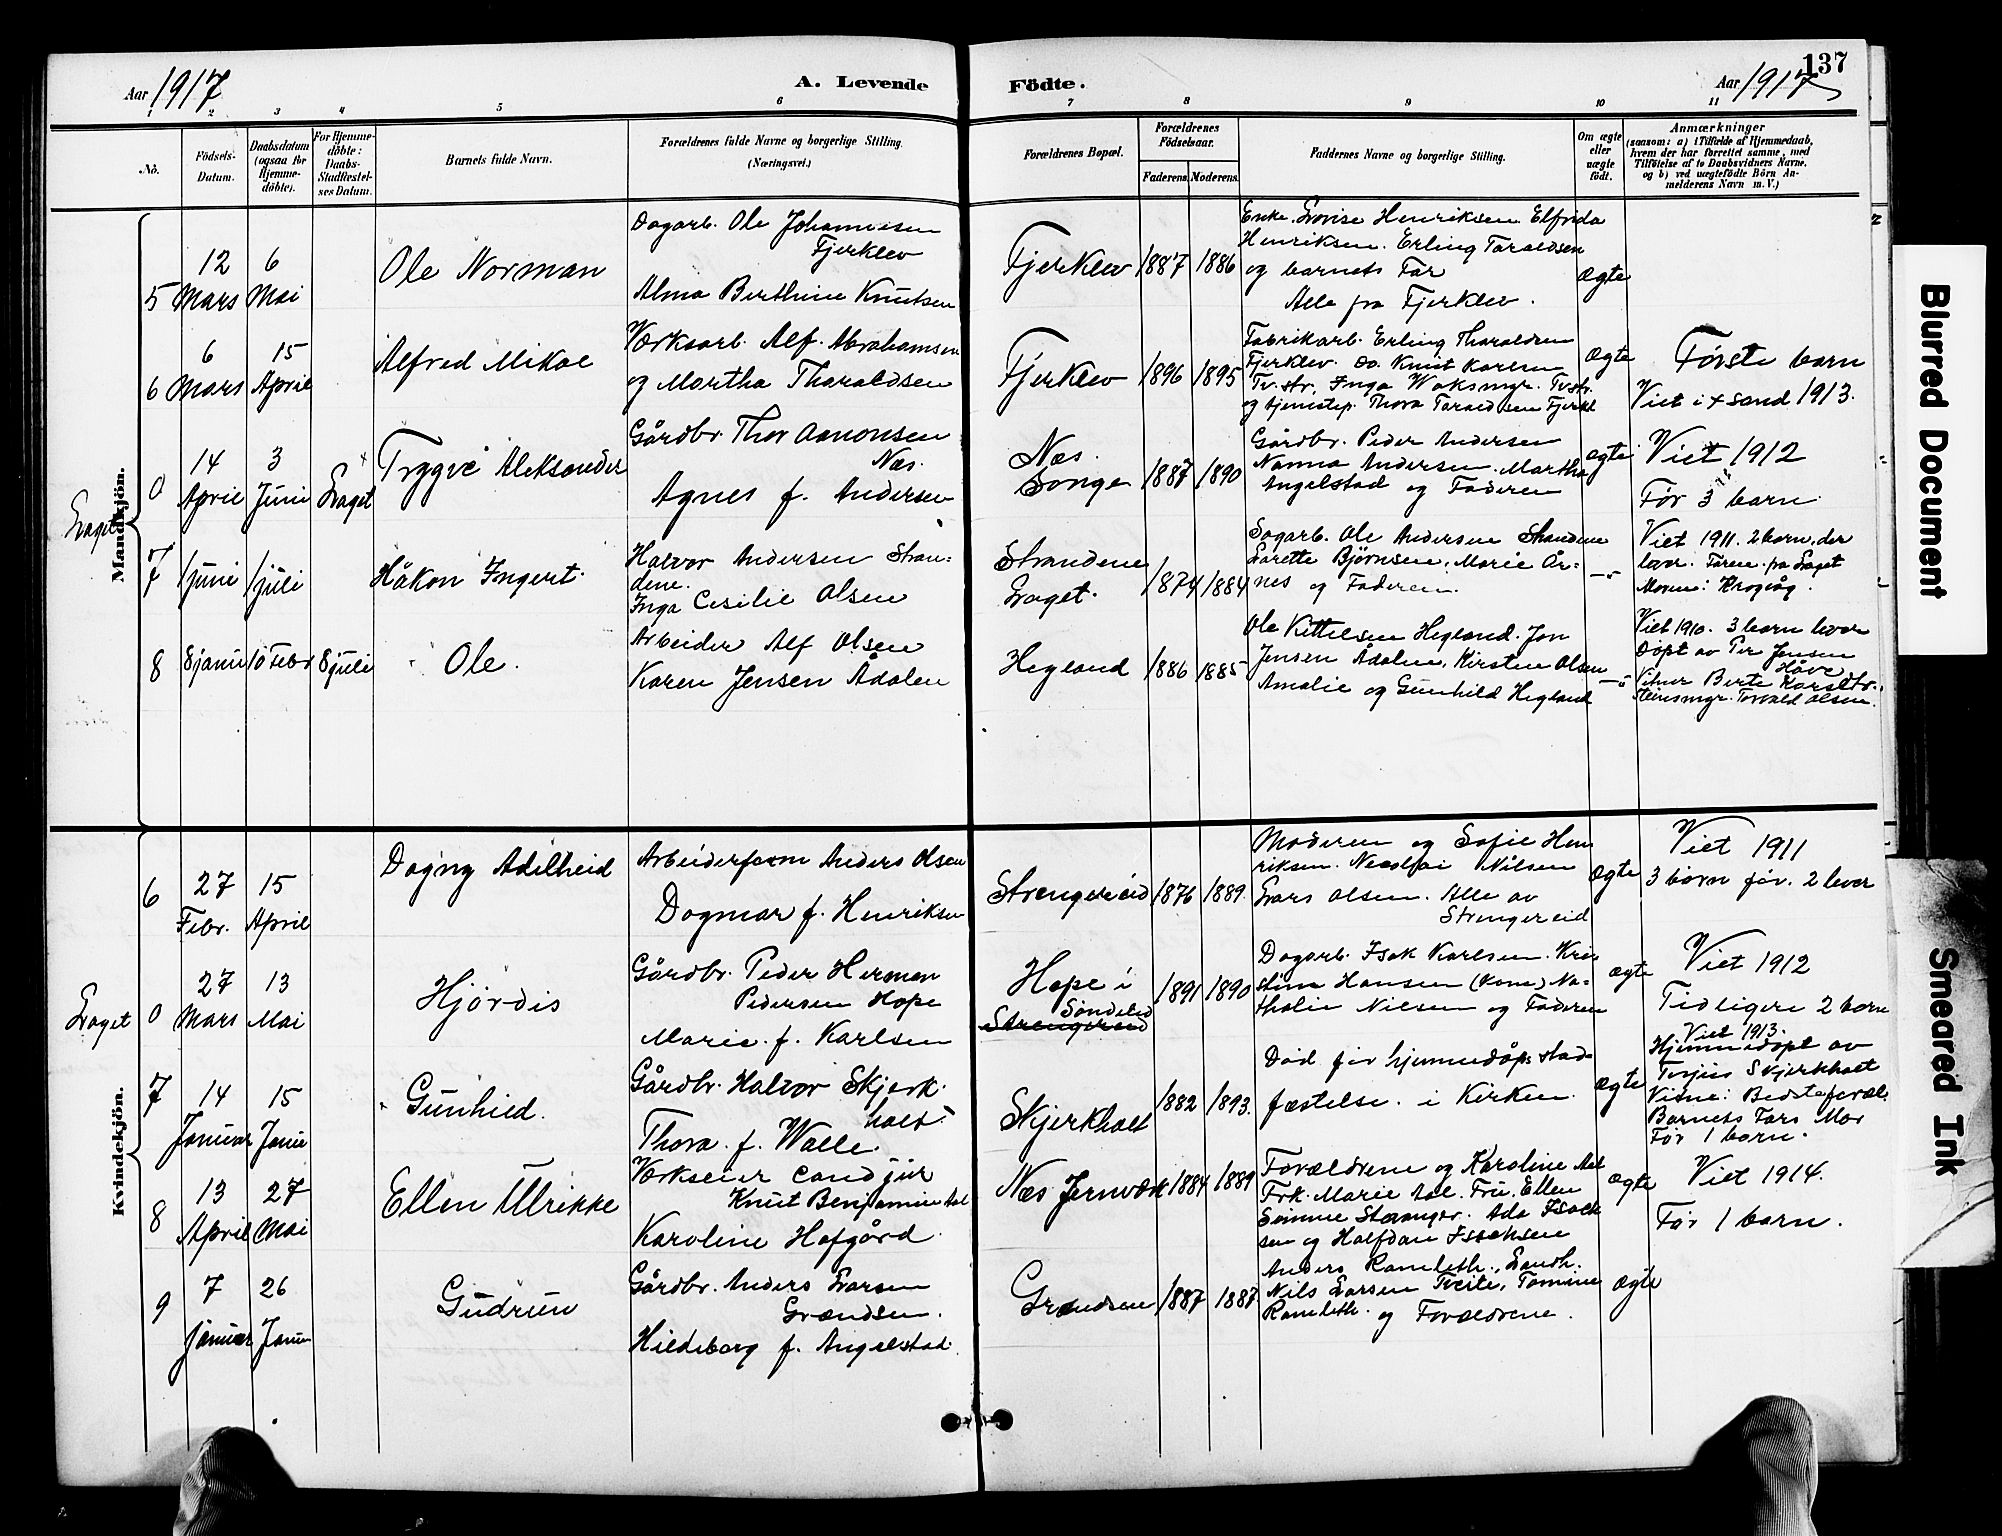 137
Aar 1917
A. Levende
Födte.
Aar 1917
1 2 3 4 5 6 7 8 9 10 11
No.
Födsels-
Datum.
Daabsdatum
(ogsaa for
Hjemme-
döbte).
For Hjemme-
döbte:
Daabs-
Stadfæstel-
ses Datum.
Barnets fulde Navn.
Forældrenes fulde Navne og borgerlige Stilling.
(Næringsvei.)
Forældrenes Bopæl.
Forældrenes
Födselsaar.
Faderens. Moderens.
Faddernes Navne og borgerlige Stilling.
Om ægte
eller
uægte
födt.
Anmærkninger
(saasom: a) i Tilfælde af Hjemmedaab,
hvem der har forrettet samme, med
Tilföielse af to Daabsvidners Navne,
og b) ved uægtefödte Börn An-
melderens Navn m. V.)
Mandkjön.
5
12
Mars
6
Mai
Ole Norman
Dagarb. Ole Johannesen
Fjerklev
Alma Berthine Knutsen
Fjerklev
1887
1886
Enke Lovise Henriksen Elfrida
Henriksen. Erling Taraldsen
og barnets Far
Alle fra Fjerklev.
ægte
6
6
Mars
15
April
Alfred Mikal
Værksarb. Alf. Abrahamsen
og Martha Tharaldsen
Fjerklev
1896
1895
Fabrikarb. Erling Tharaldsen
Fjerklev. Do. Knut Karlsen
Tv.str. Inga Waksmyr. Tv.str.
og tjenestep. Thora Taraldsen Fjerkl
ægte
Første barn
Viet i x sand 1913.
Laget
0
14
April
3
Juni
Laget
x Trygve Aleksander
Gårdbr. Thor Aanonsen
Næs.
Agnes f. Andersen
Næs.
Songe
1887
1890
Gårdbr. Peder Andersen
Nanna Andersen. Martha
Angelstad og Faderen
ægte
Viet 1912
Før 3 barn
7
1 juni
1 juli
Håkon Ingert.
Halvor Andersen Stran-
dene.
Inga Cesilie Olsen
Strandene
Laget.
1874
1884
Dagarb. Ole Andersen Strandene
Larette Bjørnsen, Marie År-
nes og Faderen.
—"—
Viet 1911. 2 barn, der
lever. Faren fra Laget
Moren: Krogvåg.
8
8 janu
10 Febr
8 juli
Ole.
Arbeider Alf Olsen
Karen Jensen Ådalen
Hegland
1886
1885
Ole Kittelsen Hegland. Jon
Jensen Ådalen, Kirsten Olsen
Amalie og Gunhild Hegland
—"—
Viet 1910. 3 barn lever
Døpt av Per Jensen
Håve
Vitner Berte
Steinsmyr. Torvald Olsen.
Kvindekjön.
6
27
Febr.
15
April
Dagny Adilheid
Arbeiderform Anders Olsen
Dagmar f. Henriksen
Strengereid
1876
1889.
Moderen og Sofie Hen
riksen. Nicolai Nilsen
Lars Olsen. Alle av
Strengereid
ægte
Viet 1911
3 barn før. 2 lever
Laget
0
27
Mars
13
Mai
Hjørdis
Gårdbr. Peder Herman
Pedersen Hope
Marie f. Karlsen
Hope i
Søndeled
Strengereid
1891
1890
Dagarb. Isak Karlsen. Kris
tine Hansen (kone) Na-
thalie Nilsen og Faderen
ægte
Viet 1912
Tidligere 2 barn
7
14
Januar
15
Janu
Gunhild.
Gårdbr. Halvor Skjerk-
holt
Thora. f. Walle.
Skjerkholt
1882
1893.
Død før hjemmedåps stad-
fæstelse. i Kirken.
ægte
Viet 1913.
Hjemmedøpt av
Terjus Skjerkholt
Vitne: Bedsteforæl.
Barnets Fars Mor
Før 1 barn.
8
13
April
27
Mai
Ellen Ulrikke
Værkseier cand jur
Knut Benjamin Aal
Karoline Hofgård.
Næs Jernværk
1884
1889
Forældrene og Karoline Aal
Frk. Marie Aal. Fru. Ellen
Sømme Stavanger. Ada Isach
sen og Halfdan Isachsen
ægte
Viet 1914.
Før 1 barn.
9
7
januar
26
Janu
Gudrun
Gårdbr. Anders Larsen
Grændsen.
Hildeborg f. Angelstad.
Grændsen
1887
1887.
Anders Ramleth., Landh.
Nils Larsen Tveite, Tomine
Ramleth. og Forældrene.
ægte
Blurred Document
Smeared Ink